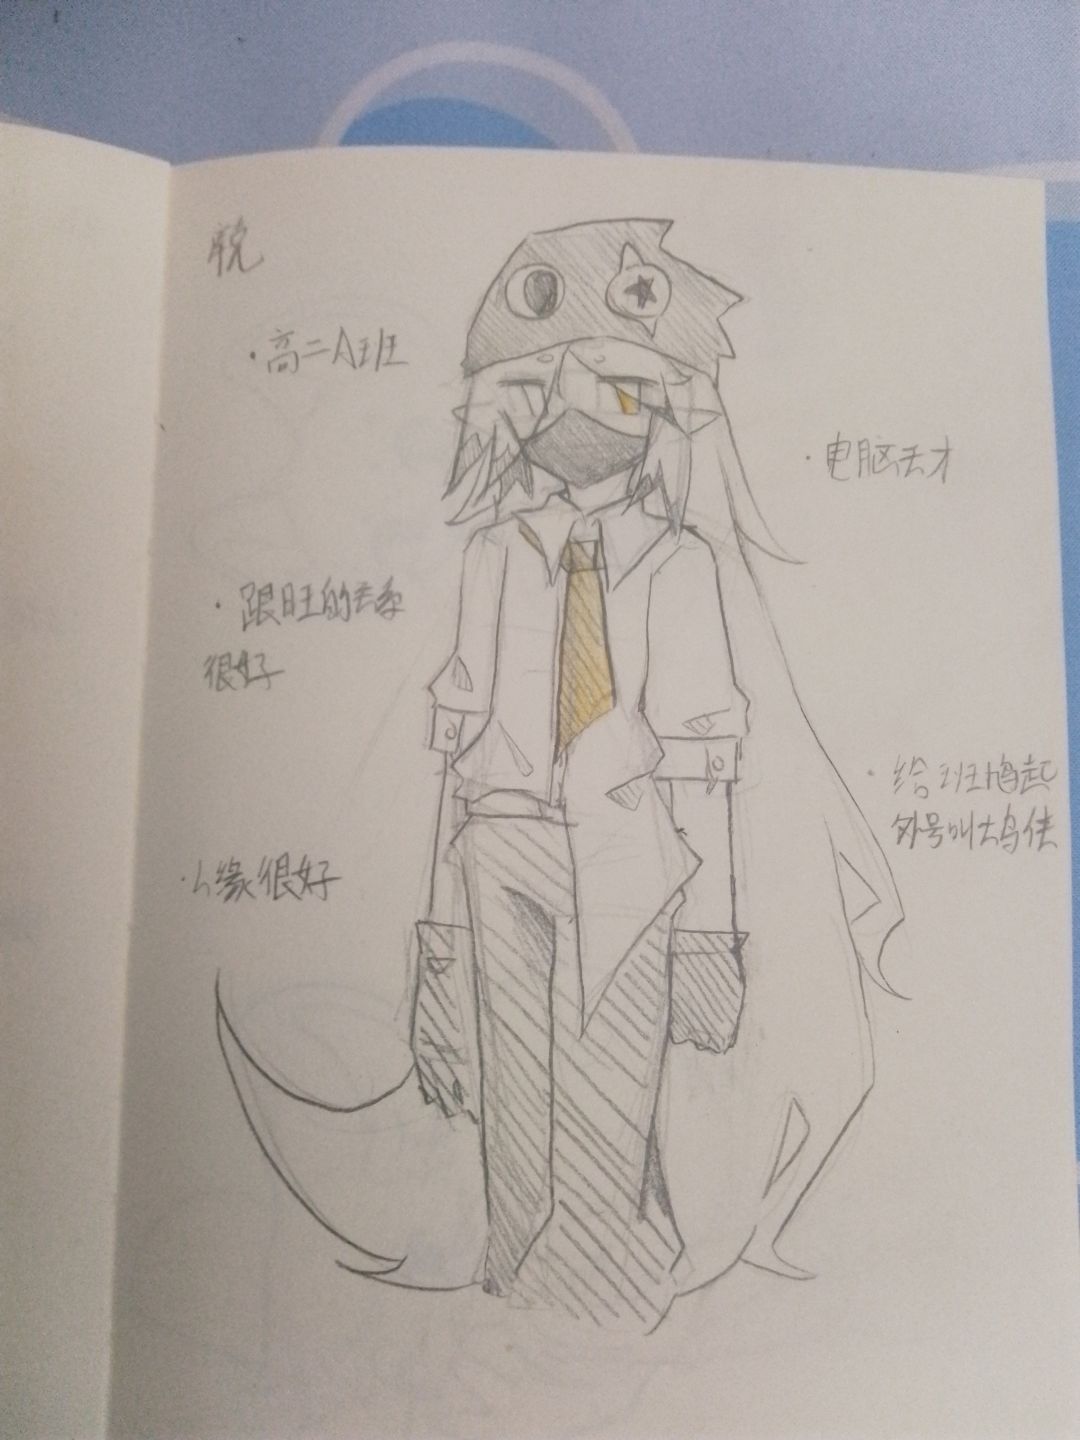 ·高二A班
·电脑天才
·跟旺的关系
很好
·给班起
外号叫大乌侠
·人缘很好